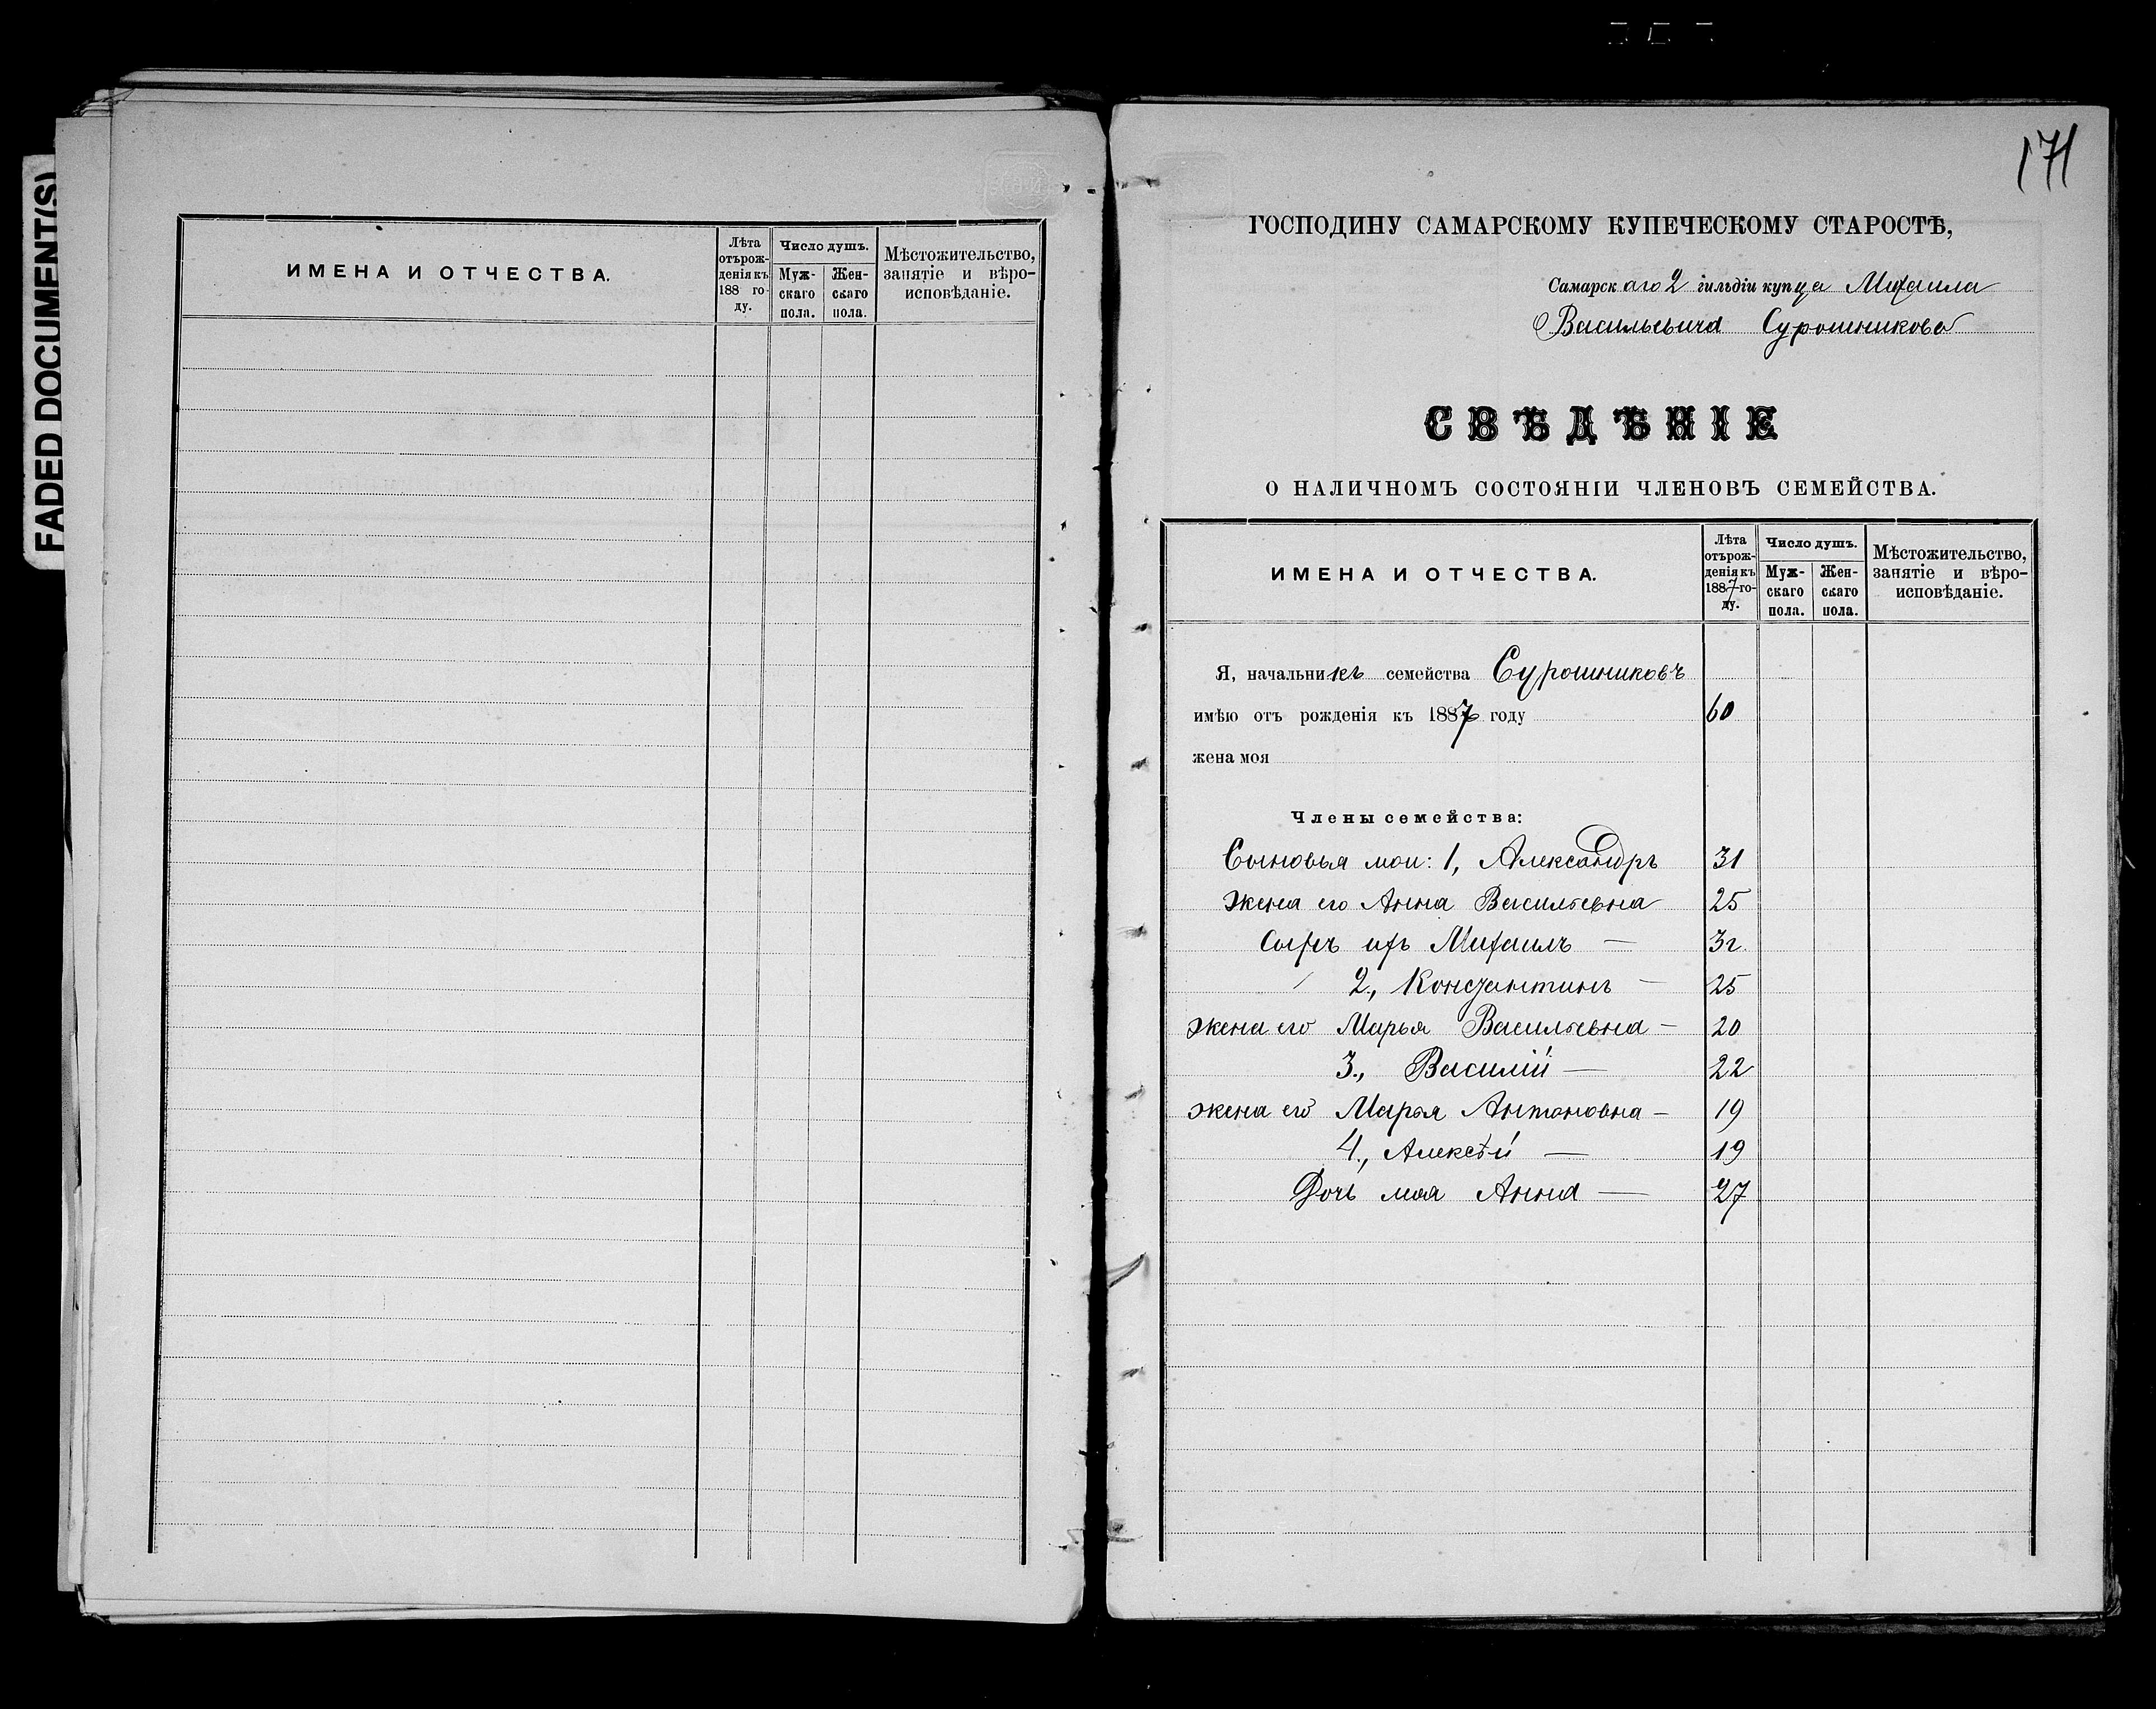 FADED DOCUMENT(S)
ИМЕНА И ОТЧЕСТВА.
Лѣта отърожденія къ 188 году.
Число душъ.
Мужскаго пола.
Женскаго пола.
Мѣстожительство, занятіе и вѣроисповѣданіе.
171
ГОСПОДИНУ САМАРСКОМУ КУПЕЧЕСКОМУ СТАРОСТѢ,
Самарскаго 2 гильдіи купца Михаила
Васильевича Сурошникова
СВѢДѢНІЕ
О НАЛИЧНОМЪ СОСТОЯНІИ ЧЛЕНОВЪ СЕМЕЙСТВА.
ИМЕНА И ОТЧЕСТВА.
Лѣта отърожденія къ 1887 году.
Число душъ.
Мужскаго пола.
Женскаго пола.
Мѣстожительство, занятіе и вѣроисповѣданіе.
Я, начальникъ семейства Сурошниковъ
имѣю отъ рожденія къ 1887 году 60
жена моя
Члены семейства:
Сыновья мои: 1, Александръ 31
жена его Анна Васильевна 25
Сынъ ихъ Михаилъ — 3г.
2., Константинъ — 25
жена его Марья Васильевна — 20
3., Василій — 22
жена его Марья Антоновна — 19
4., Алексѣй — 19
Дочь моя Анна — 27